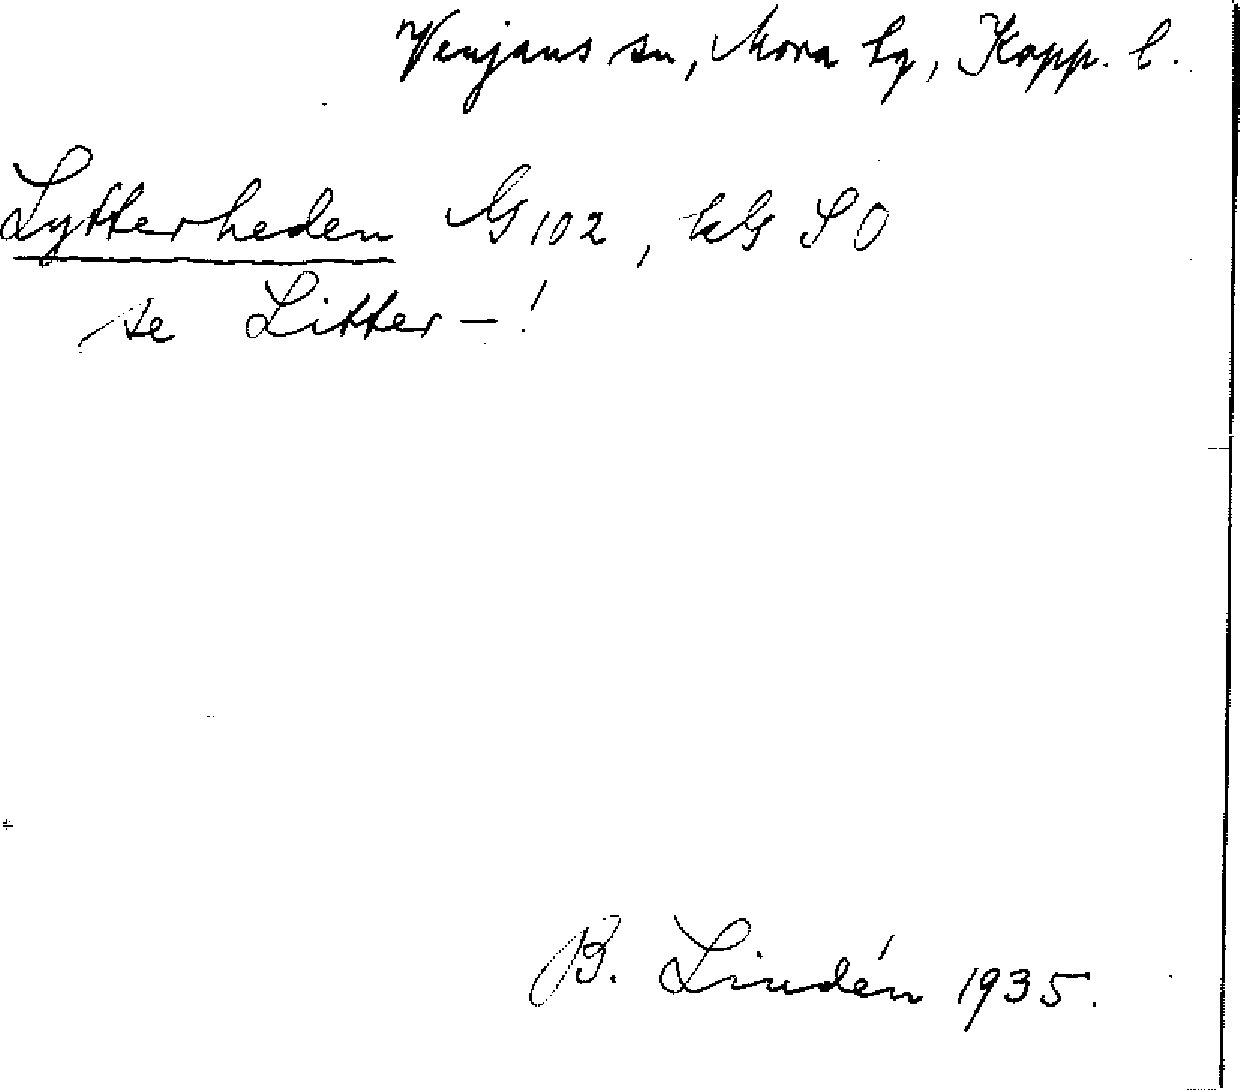 Venjans sn, Mora tg, Kopp. l.
Lytterheden G 102, kG SO
se Litter – !
B. Lindén 1935.